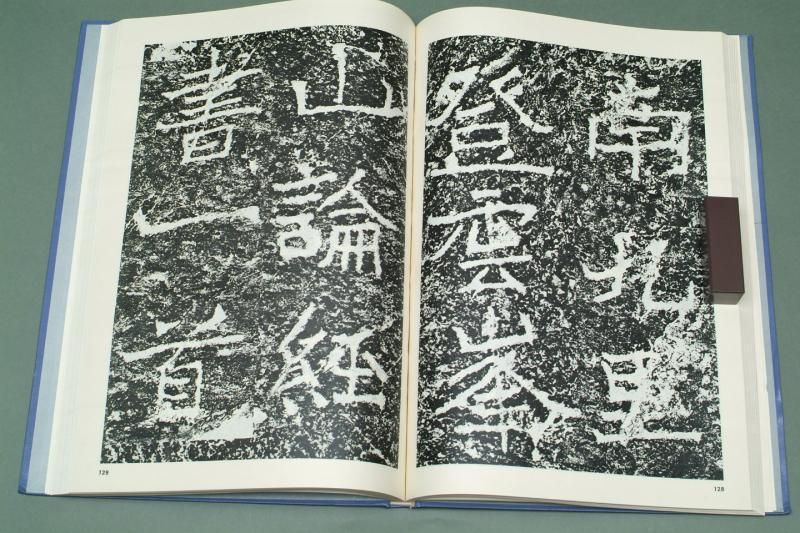 南九里
登雲峯
山論經
書一首
128
129